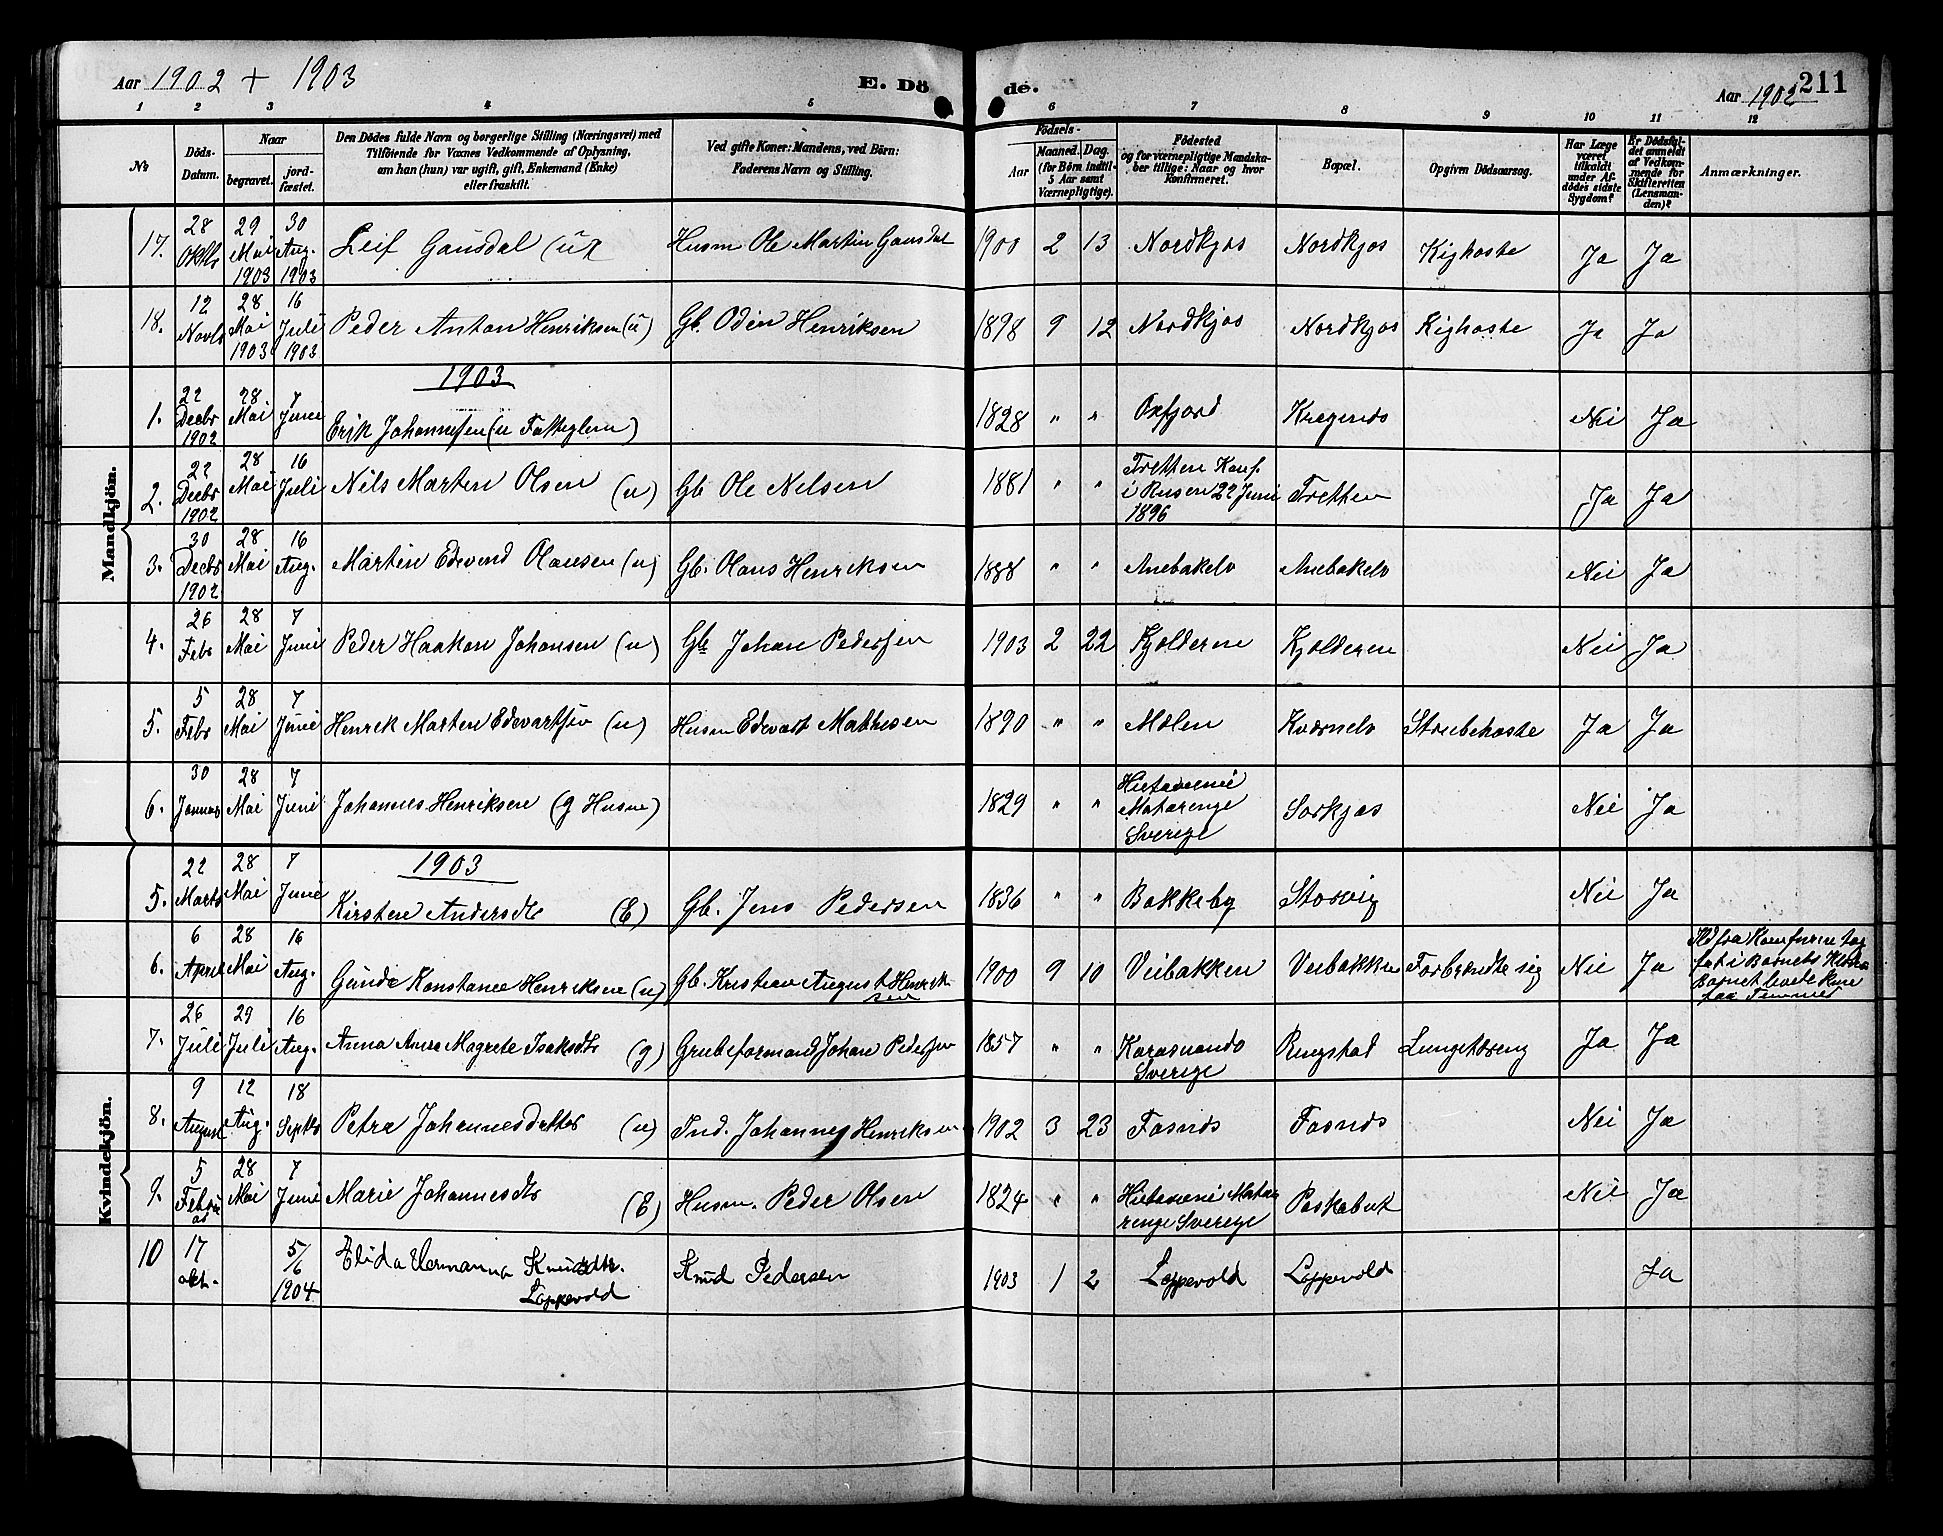 Aar 1902 + 1903
E. Dö
de.
Aar 1902
211
1 2 3 4 5 6 7 8 9 10 11 12
No
Döds-Datum.
Naar
begravet.
jordfæstet.
Den Dödes fulde Navn og borgerlige Stilling (Næringsvei) med
Tilföiende for Voxnes Vedkommende af Oplysning,
om han (hun) var ugift, gift, Enkemand (Enke)
eller fraskilt.
Ved gifte Koner: Mandens, ved Börn:
Faderens Navn og Stilling.
Födsels-
Aar
Maaned. Dag.
(for Börn indtil
5 Aar samt
Værnepligtige).
Födested
og for værnepligtige Mandska-
ber tillige: Naar og hvor
Konfirmeret.
Bopæl.
Opgiven Dödsaarsag.
Har Læge
været
tilkaldt
under Af-
dödes sidste
Sygdom?
Er Dödsfal-
det anmeldt
af Vedkom-
mende for
Skifteretten
(Lensman-
den)?
Anmærkninger.
Mandkjön.
17. 28 Oktbr 29 Mai 1903 30 Aug. 1903 Leif Gausdal (u) Husm Ole Martin Gausdal 1900 2 13 Nordkjos Nordkjos Kighoste Ja Ja
18. 12 Novbr 28 Mai 1903 16 Juli 1903 Peder Anton Henriksen (u) Gb. Odin Henriksen 1898 9 12 Nordkjos Nordkjos Kighoste Ja Ja
1903
1. 22 Decbr 1902 28 Mai 7 Juni Erik Johannesen (u Fattiglem) 1828 " " Oxfjord Kragenes Nei Ja
2. 22 Decbr 1902 28 Mai 16 Juli Nils Marten Olsen (u) Gb Ole Nilsen 1881 " " Tretten Konf. i 22 Juni 1896 Tretten Ja Ja
3. 30 Decbr 1902 28 Mai 16 Aug. Martin Edevend Olausen (u) Gb. Olaus Henriksen 1888 " " Anebakelv Anebakelv Nei Ja
4. 26 Febr 28 Mai 7 Juni Peder Haakon Johansen (u) Gb Johan Pedersen 1903 2 22 Kjolderen Kjolderen Nei Ja
5. 5 Febr 28 Mai 7 Juni Henrik Marten Edevartsen (u) Husm Edevart Mathisen 1890 " " Molen Kvænelv Strubehoste Ja Ja
6. 30 Januar 28 Mai 7 Juni Johannes Henriksen (g Husm) 1829 " " Hietaniemi Matarenge Sverige Sorkjos Nei Ja
Kvindekjön.
1903
5. 22 Marts 28 Mai 7 Juni Kirsten Andersdtr (E) Gb. Jens Pedersen 1836 " " Bakkeby Storvig Nei Ja
6. 6 April 28 Mai 16 Aug. Gunda Konstance Henriksen (u) Gb. Kristian August Henriksen 1900 9 10 Veibakken Veibakken Forbrændte sig Nei Ja Ild fra Komfuren tog fat i Barnets Klæder Barnet levede kun faa Timer
7. 26 Juli 29 Juli 16 Aug. Anna Anne Magrete Isaksdtr (g) Grubeformand Johan Pedersen 1857 " " Karasuando Sverige Ringstad Lungetæring Ja Ja
8. 9 August 12 Aug. 18 Septbr Petra Johannesdatter (u) Ind. Johannes Henriksen 1902 3 23 Fosnæs Fosnæs Nei Ja
9. 5 Februar 28 Mai 7 Juni Marie Johannesdtr (E) Husm. Peder Olsen 1824 " " Hietaniemi Matarenge Sverige Nei Ja
10 17 okt. 5/6 1904 Elida Hermanna Knudsdtr. Loppevold Knud Pedersen 1903 1 2 Loppevold Loppevold Ja